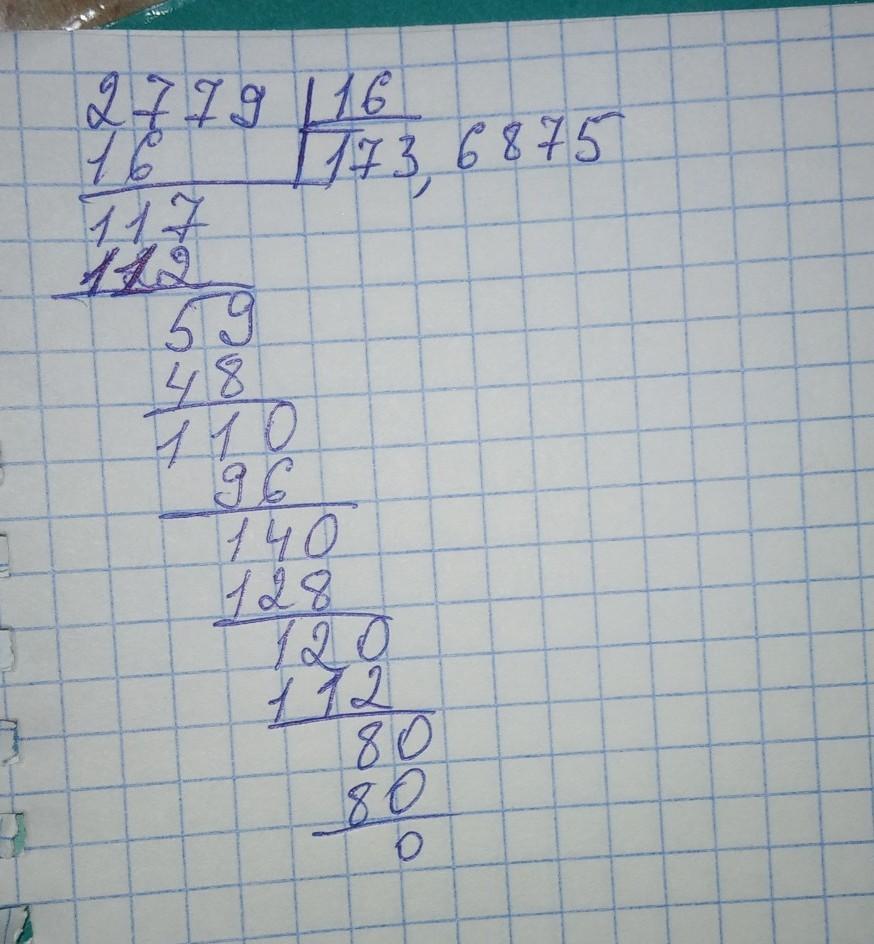 2779 16
16 173,6875
117
112
59
48
110
96
140
128
120
112
80
80
0